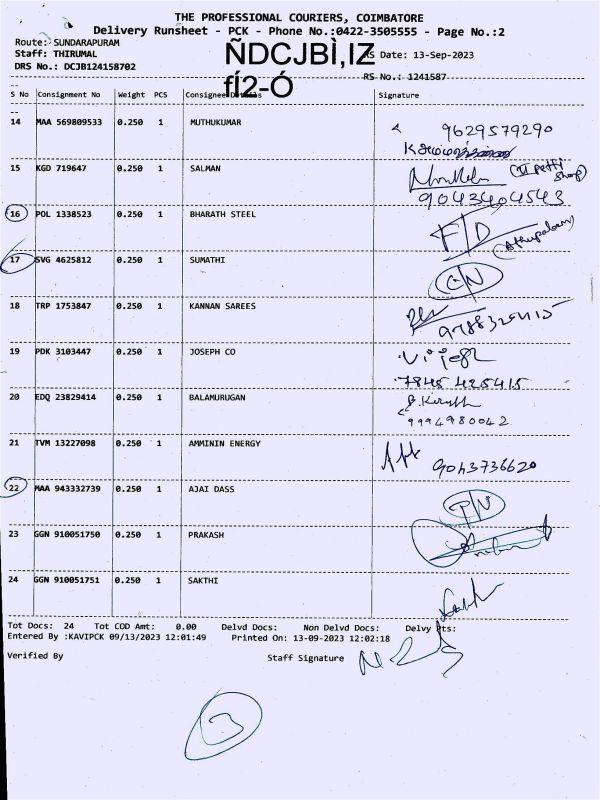 THE PROFESSIONAL COURIERS, COIMBATORE
Delivery Runsheet - PCK - Phone No.:0422-3505555 - Page No.:2
Route: SUNDARAPURAM
Staff: THIRUMAL ÑDCJBÌ,IZ RS Date: 13-Sep-2023
DRS No.: DCJB124158702 fÍ2-Ó RS No.: 1241587
S No Consignment No Weight PCS Consignee Details Signature
14 MAA 569809533 0.250 1 MUTHUKUMAR 9629579290
15 KGD 719647 0.250 1 SALMAN
9043404543
16 POL 1338523 0.250 1 BHARATH STEEL F/D
17 SVG 4625812 0.250 1 SUMATHI
18 TRP 1753847 0.250 1 KANNAN SAREES
19 PDK 3103447 0.250 1 JOSEPH CO
7845425415
20 EDQ 23829414 0.250 1 BALAMURUGAN
9994980042
21 TVM 13227098 0.250 1 AMMININ ENERGY
9043736620
22 MAA 943332739 0.250 1 AJAI DASS
23 GGN 910051750 0.250 1 PRAKASH
24 GGN 910051751 0.250 1 SAKTHI
Tot Docs: 24 Tot COD Amt: 0.00 Delvd Docs: Non Delvd Docs: Delvy Pts:
Entered By :KAVIPCK 09/13/2023 12:01:49 Printed On: 13-09-2023 12:02:18
Verified By Staff Signature
3